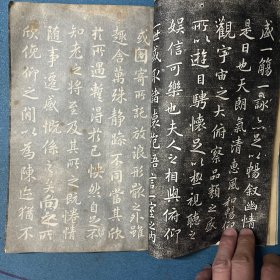 盛一觴一詠亦足以暢敘幽情
是日也天朗氣清惠風和暢仰
觀宇宙之大俯察品類之盛
所以遊目騁懷足以極視聽之
娛信可樂也夫人之相與俯仰
一世或取諸懷抱悟言一室之內
或因寄所託放浪形骸之外雖
趣舍萬殊靜躁不同當其欣
於所遇暫得於己快然自足不
知老之將至及其所之既惓情
隨事遷感慨係之矣向之所
欣俛仰之間以為陳迹猶不